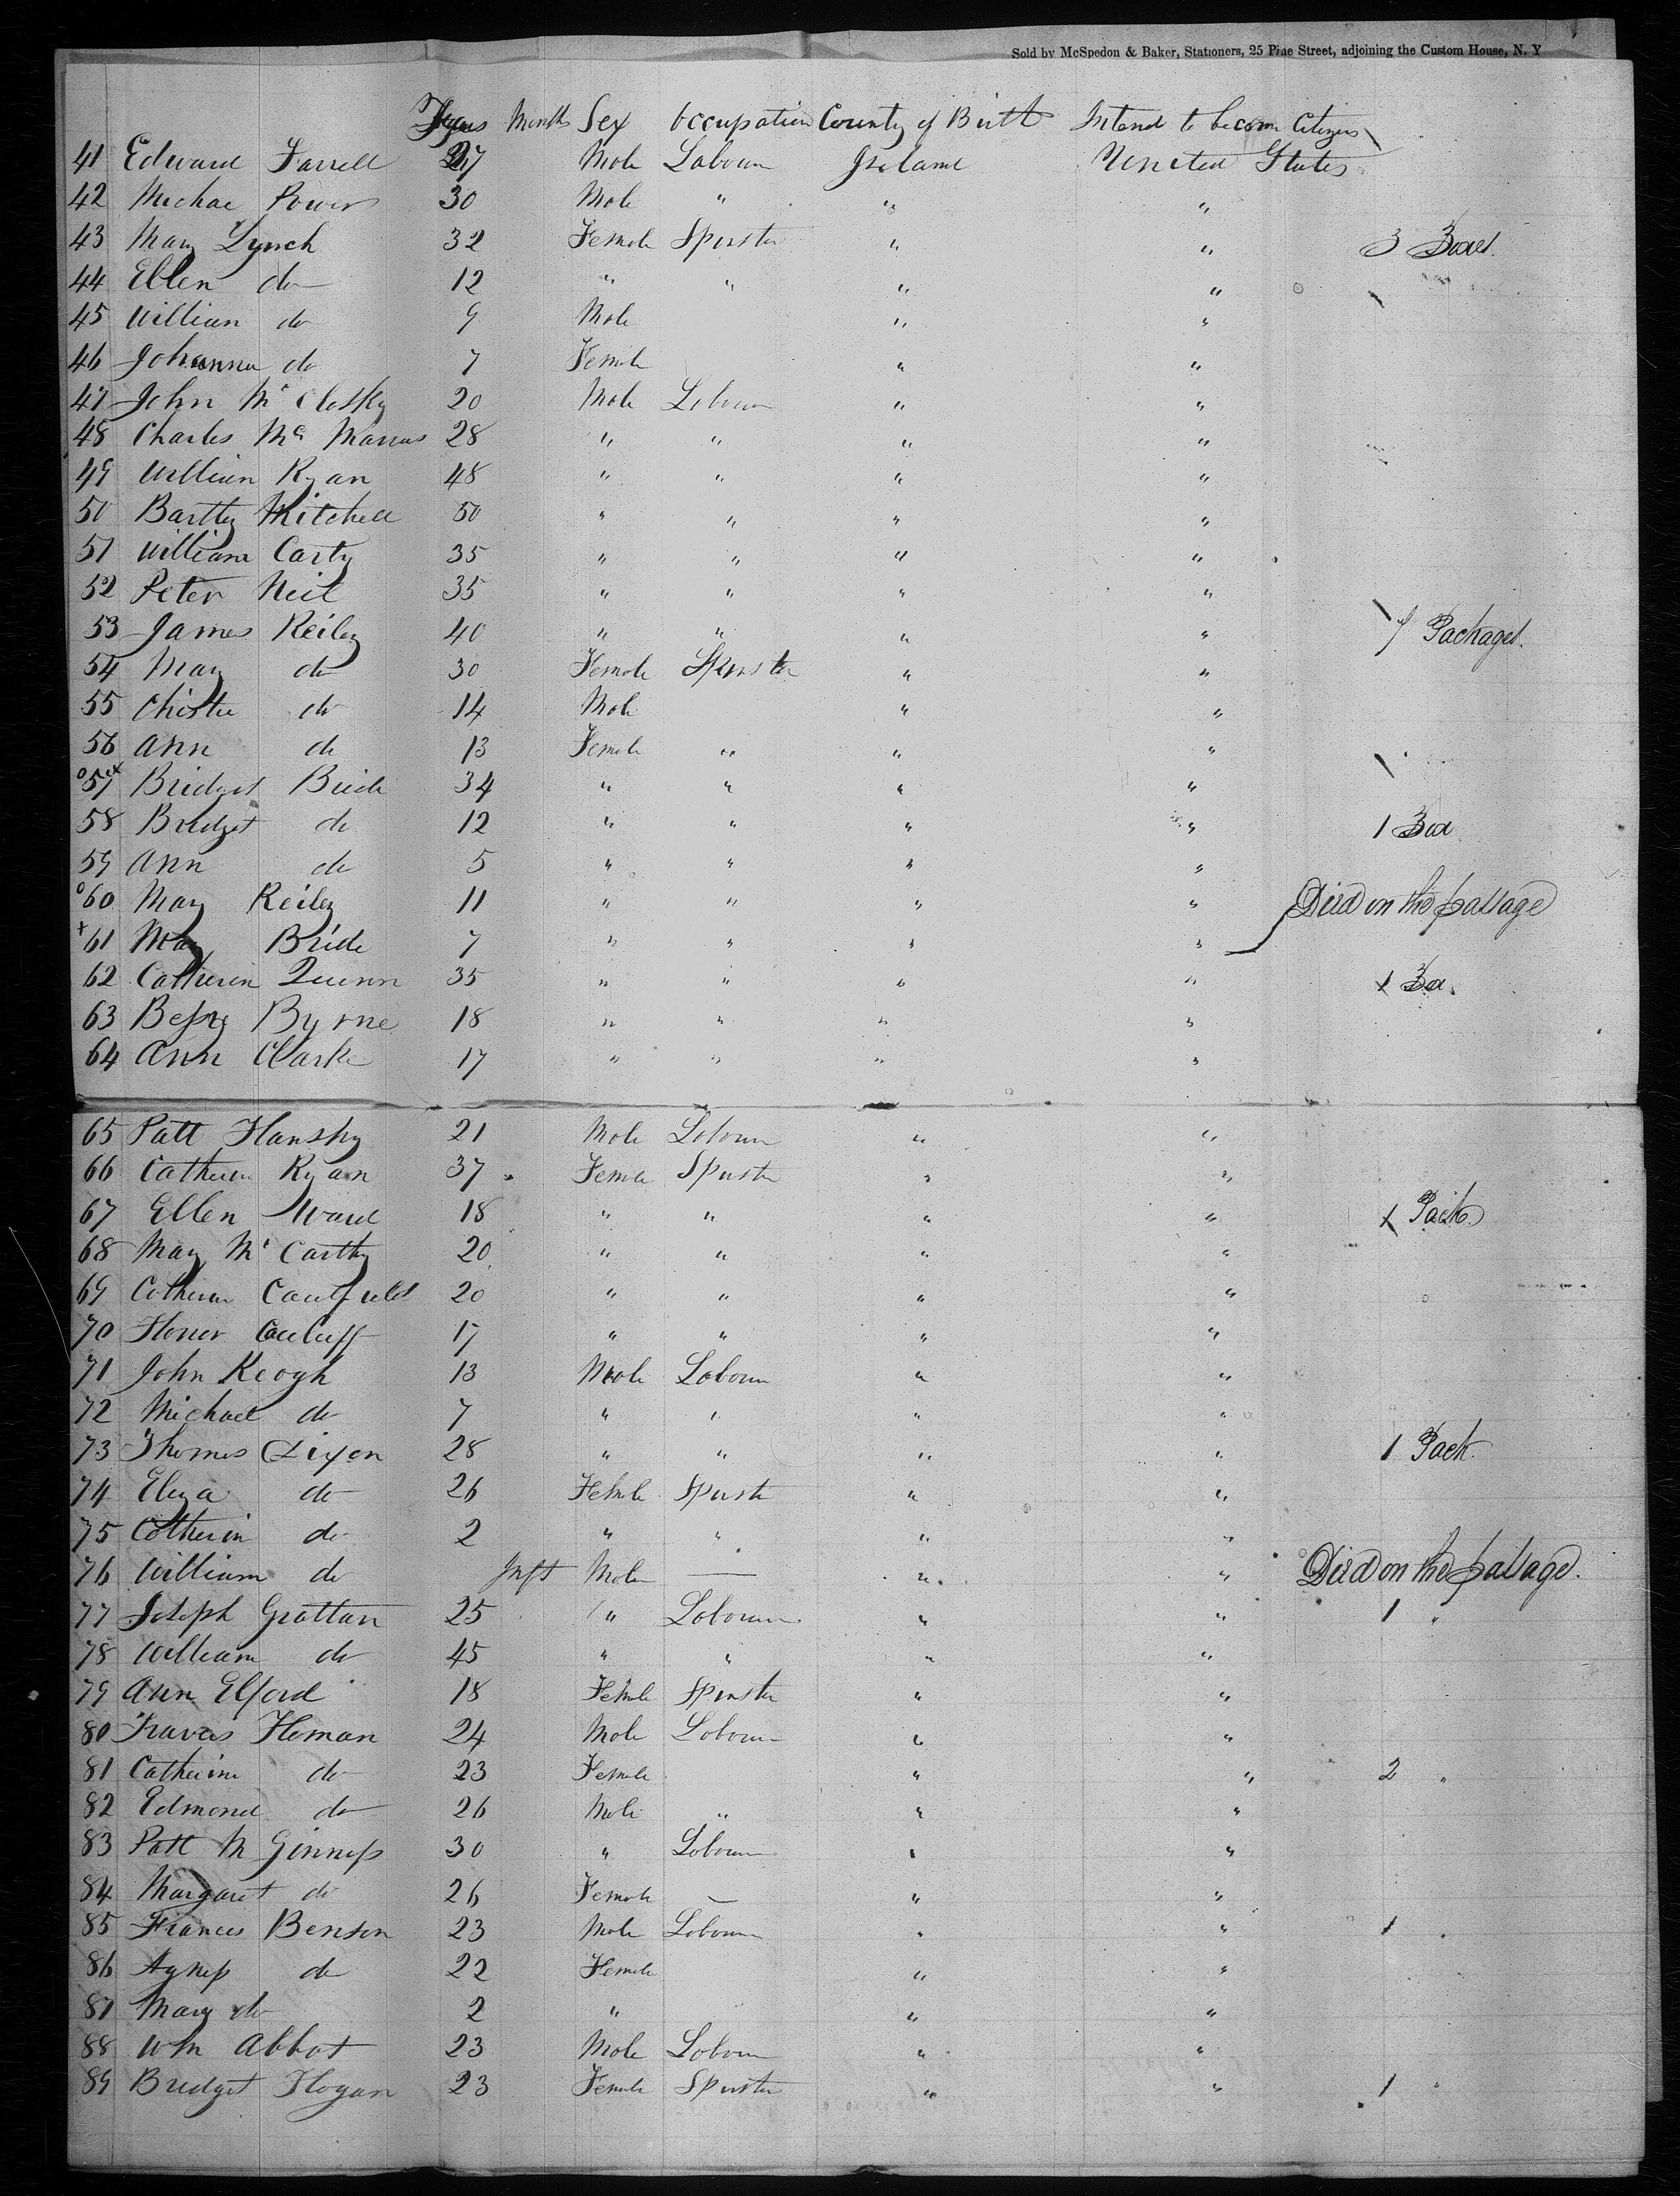 Sold by McSpedon & Baker, Stationers, 25 Pine Street, adjoining the Custom House, N. Y
Years Month Sex Occupation County of Birth Intend to becom Citizens
41 Edward Farrell 27 Male Labour Ireland United States
42 Michae Powers 30 Male " " "
43 Mary Lynch 32 Female Spinster " " 3 Boxes.
44 Ellen do 12 " " " "
45 William do 9 Male " "
46 Johanna do 7 Female " "
47 John Mc Closky 20 Male Labour " "
48 Charles Mc Manus 28 " " " "
49 William Ryan 48 " " " "
50 Bartly Mitchell 50 " " " "
51 William Carty 35 " " " "
52 Peter Neil 35 " " " "
53 James Reiley 40 " " " " 7 Packages.
54 Mary do 30 Female Spinster " "
55 Christie do 14 Male " "
56 Ann do 13 Female " " "
57 Bridget Bride 34 " " " "
58 Bridget do 12 " " " " 1 Box
59 Ann do 5 " " " "
60 Mary Reiley 11 " " " " Died on the passage
61 May Bride 7 " " " "
62 Catherin Quinn 35 " " " " 1 Box
63 Bessy Byrne 18 " " " "
64 Ann Clarke 17 " " " "
65 Patt Hansky 21 Male Labour " "
66 Catherin Ryan 37 Female Spinster " "
67 Ellen Ward 18 " " " " 1 Pack
68 Mary Mc Carthy 20 " " " "
69 Catherin Caulfield 20 " " " "
70 Honor 17 " " " "
71 John Keogh 13 Male Labour " "
72 Michael do 7 " " " "
73 Thomas Dixon 28 " " " " 1 Pack.
74 Eliza do 26 Female Spinster " "
75 Catherin do 2 " " " "
76 William do Inft Male — " " Died on the passage.
77 Joseph Grattan 25 " Labourer " " 1 "
78 William do 45 " " " "
79 Ann Elford 18 Female Spinster " "
80 Travers Homan 24 Male Labour " "
81 Catherine do 23 Female " " 2 "
82 Edmond do 26 Male " " "
83 Patt Mc Ginness 30 " Labour " "
84 Margaret do 26 Female — " "
85 Frances Benson 23 Male Labour " " 1 "
86 Agness do 22 Female " "
87 Mary do 2 " " "
88 Wm Abbot 23 Male Labour " "
89 Bridget Hogan 23 Female Spinster " " 1 "